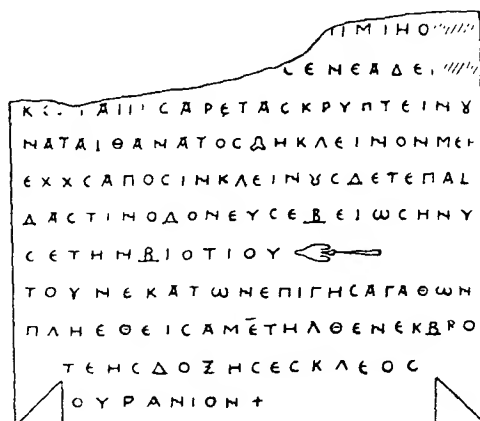 ΙΜΙΗΟ
ϹΕΝΕΑΔΕ
ϹΑΡΕΤΑϹΚΡΥΠΤΕΙΝȢ
ΝΑΤΑΙΘΑΝΑΤΟϹΔΗΚΛΕΙΝΟΝΜΕΙ
ΕΧΧϹΑΠΟϹΙΝΚΛΕΙΝȢϹΔΕΤΕΠΑΙ
ΔΑϹΤΙΝΟΔΟΝΕΥϹΕΒΕΙωϹΗΝΥ
ϹΕΤΗΝΒΙΟΤΙΟΥ
ΤΟΥΝΕΚΑΤωΝΕΠΙΓΗϹΑΓΑΘωΝ
ΠΛΗΕΘΕΙϹΑΜΕ̄ΤΗΛΘΕΝΕΚΒΡΟ
ΤΕΗϹΔΟΞΗϹΕϹΚΛΕΟϹ
ΟΥΡΑΝΙΟΝ+